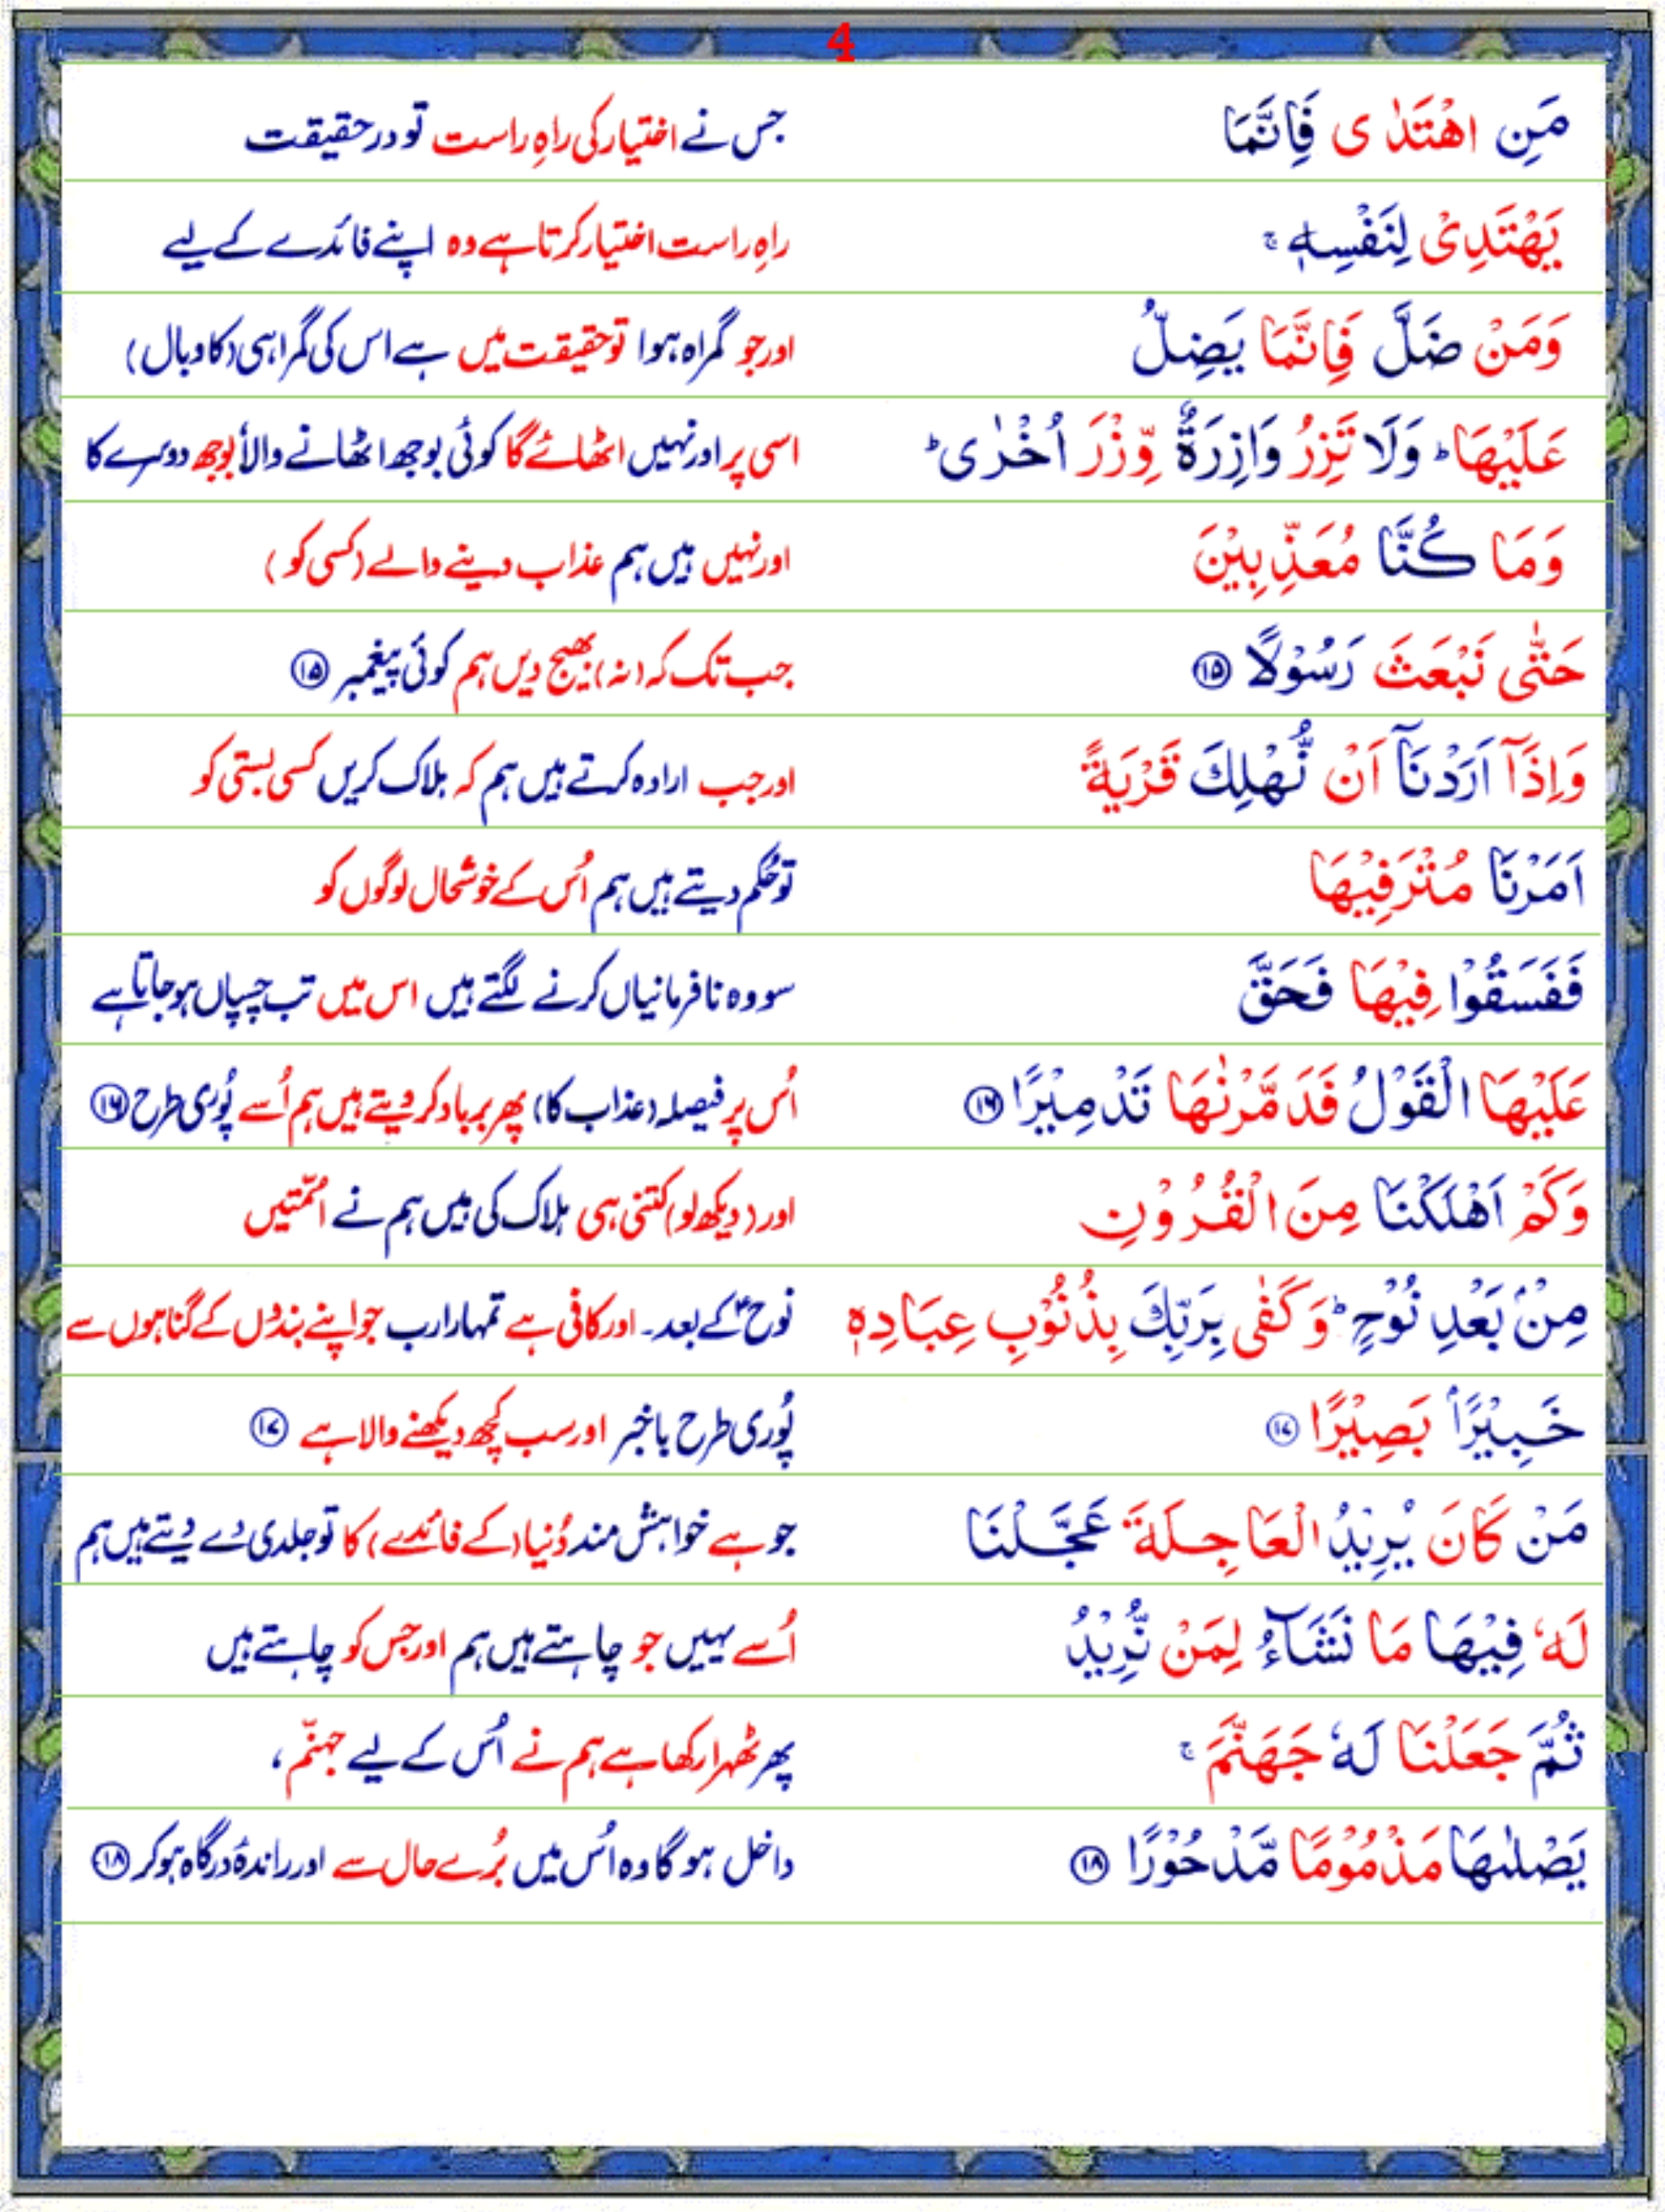 4
مَنِ اهْتَدٰى فَاِنَّمَا جس نے اختیار کی راہِ راست تو درحقیقت
يَهْتَدِىْ لِنَفْسِهٖ ۚ راہِ راست اختیار کرتا ہے وہ اپنے فائدے کے لیے
وَمَنْ ضَلَّ فَاِنَّمَا يَضِلُّ اور جو گمراہ ہوا تو حقیقت میں ہے اس کی گمراہی (کا وبال)
عَلَيْهَا ؕ وَلَا تَزِرُ وَازِرَةٌ وِّزْرَ اُخْرٰى ؕ اسی پر اور نہیں اٹھائے گا کوئی بوجھ اٹھانے والا بوجھ دوسرے کا
وَمَا كُنَّا مُعَذِّبِيْنَ اور نہیں ہیں ہم عذاب دینے والے (کسی کو)
حَتّٰى نَبْعَثَ رَسُوْلًا ۱۵ جب تک کہ (نہ) بھیج دیں ہم کوئی پیغمبر ۱۵
وَاِذَاۤ اَرَدْنَاۤ اَنْ نُّهْلِكَ قَرْيَةً اور جب ارادہ کرتے ہیں ہم کہ ہلاک کریں کسی بستی کو
اَمَرْنَا مُتْرَفِيْهَا تو حُکم دیتے ہیں ہم اُس کے خوشحال لوگوں کو
فَفَسَقُوْا فِيْهَا فَحَقَّ سو وہ نافرمانیاں کرنے لگتے ہیں اس میں تب چسپاں ہو جاتا ہے
عَلَيْهَا الْقَوْلُ فَدَمَّرْنٰهَا تَدْمِيْرًا ۱۶ اُس پر فیصلہ (عذاب کا) پھر برباد کر دیتے ہیں ہم اُسے پُوری طرح ۱۶
وَكَمْ اَهْلَكْنَا مِنَ الْقُرُوْنِ اور (دیکھ لو) کتنی ہی ہلاک کی ہیں ہم نے اُمّتیں
مِنْۢ بَعْدِ نُوْحٍ ؕ وَكَفٰى بِرَبِّكَ بِذُنُوْبِ عِبَادِهٖ نوحؑ کے بعد۔ اور کافی ہے تمہارا رب جو اپنے بندوں کے گناہوں سے
خَبِيْرًۢا بَصِيْرًا ۱۷ پُوری طرح باخبر اور سب کچھ دیکھنے والا ہے ۱۷
مَنْ كَانَ يُرِيْدُ الْعَاجِلَةَ عَجَّلْنَا جو ہے خواہش مند دُنیا (کے فائدے) کا تو جلدی دے دیتے ہیں ہم
لَهٗ فِيْهَا مَا نَشَآءُ لِمَنْ نُّرِيْدُ اُسے یہیں جو چاہتے ہیں ہم اور جس کو چاہتے ہیں
ثُمَّ جَعَلْنَا لَهٗ جَهَنَّمَ ۚ پھر ٹھہرا رکھا ہے ہم نے اُس کے لیے جہنّم،
يَصْلٰٮهَا مَذْمُوْمًا مَّدْحُوْرًا ۱۸ داخل ہو گا وہ اُس میں بُرے حال سے اور راندۂ درگاہ ہو کر ۱۸